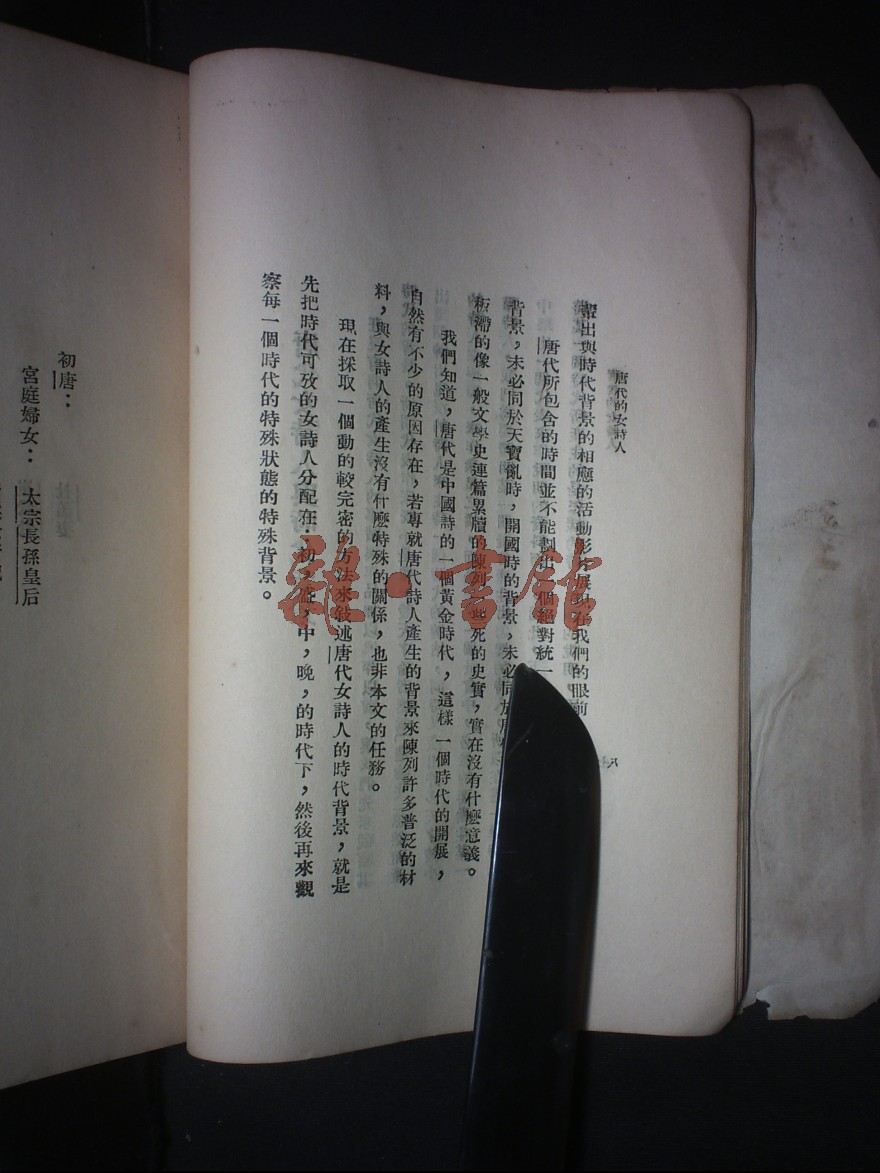 唐代的女詩人
出與時代背景的相應的活動影片展現在我們的眼前
唐代所包含的時間並不能劃出一個絕對統一
背景,未必同於天寶亂時,開國時的背景,未必同於
板滯的像一般文學史連篇累牘的陳列一些死的史實,實在沒有什麼意義。
我們知道,唐代是中國詩的一個黃金時代,這樣一個時代的開展,
自然有不少的原因存在,若專就唐代詩人產生的背景來陳列許多普泛的材
料,與女詩人的產生沒有什麼特殊的關係,也非本文的任務。
現在採取一個動的較完密的方法來敍述唐代女詩人的時代背景,就是
先把時代可攷的女詩人分配在:初,盛,中,晚,的時代下,然後再來觀
察每一個時代的特殊狀態的特殊背景。
初唐:
宮庭婦女:太宗長孫皇后
雜·書館